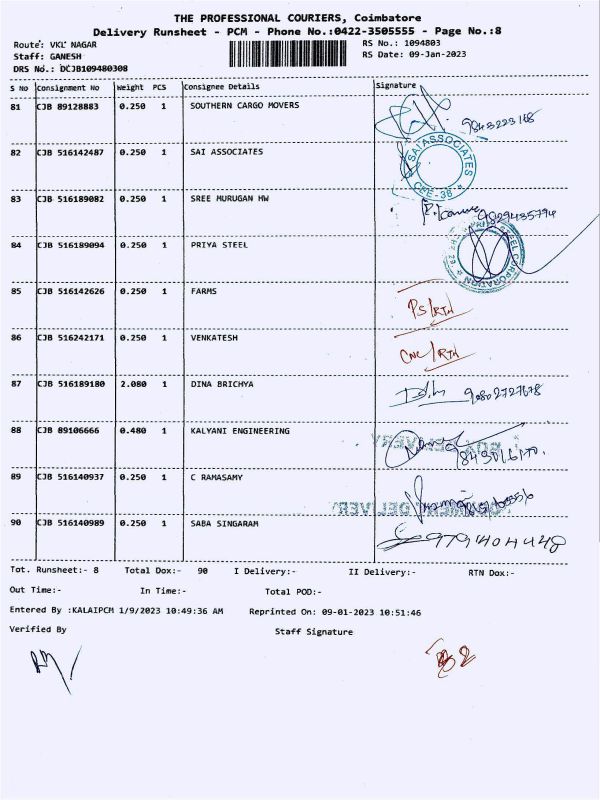 THE PROFESSIONAL COURIERS, Coimbatore
Delivery Runsheet - PCM - Phone No.:0422-3505555 - Page No.:8
Route: VKL NAGAR
RS No.: 1094803
Staff: GANESH
RS Date: 09-Jan-2023
DRS No.: DCJB109480308
S No Consignment No Weight PCS Consignee Details Signature
81 CJB 89128883 0.250 1 SOUTHERN CARGO MOVERS
82 CJB 516142487 0.250 1 SAI ASSOCIATES SAI ASSOCIATES CBE-38
83 CJB 516189082 0.250 1 SREE MURUGAN HW 9829435794
84 CJB 516189094 0.250 1 PRIYA STEEL STEEL CORPORATION
85 CJB 516142626 0.250 1 FARMS PS/RTN
86 CJB 516242171 0.250 1 VENKATESH CNC/RTN
87 CJB 516189180 2.080 1 DINA BRICHYA
88 CJB 89106666 0.480 1 KALYANI ENGINEERING DELIVERY
89 CJB 516140937 0.250 1 C RAMASAMY
90 CJB 516140989 0.250 1 SABA SINGARAM 9791404448
Tot. Runsheet:- 8 Total Dox:- 90 I Delivery:- II Delivery:- RTN Dox:-
Out Time:- In Time:- Total POD:-
Entered By :KALAIPCM 1/9/2023 10:49:36 AM Reprinted On: 09-01-2023 10:51:46
Verified By Staff Signature